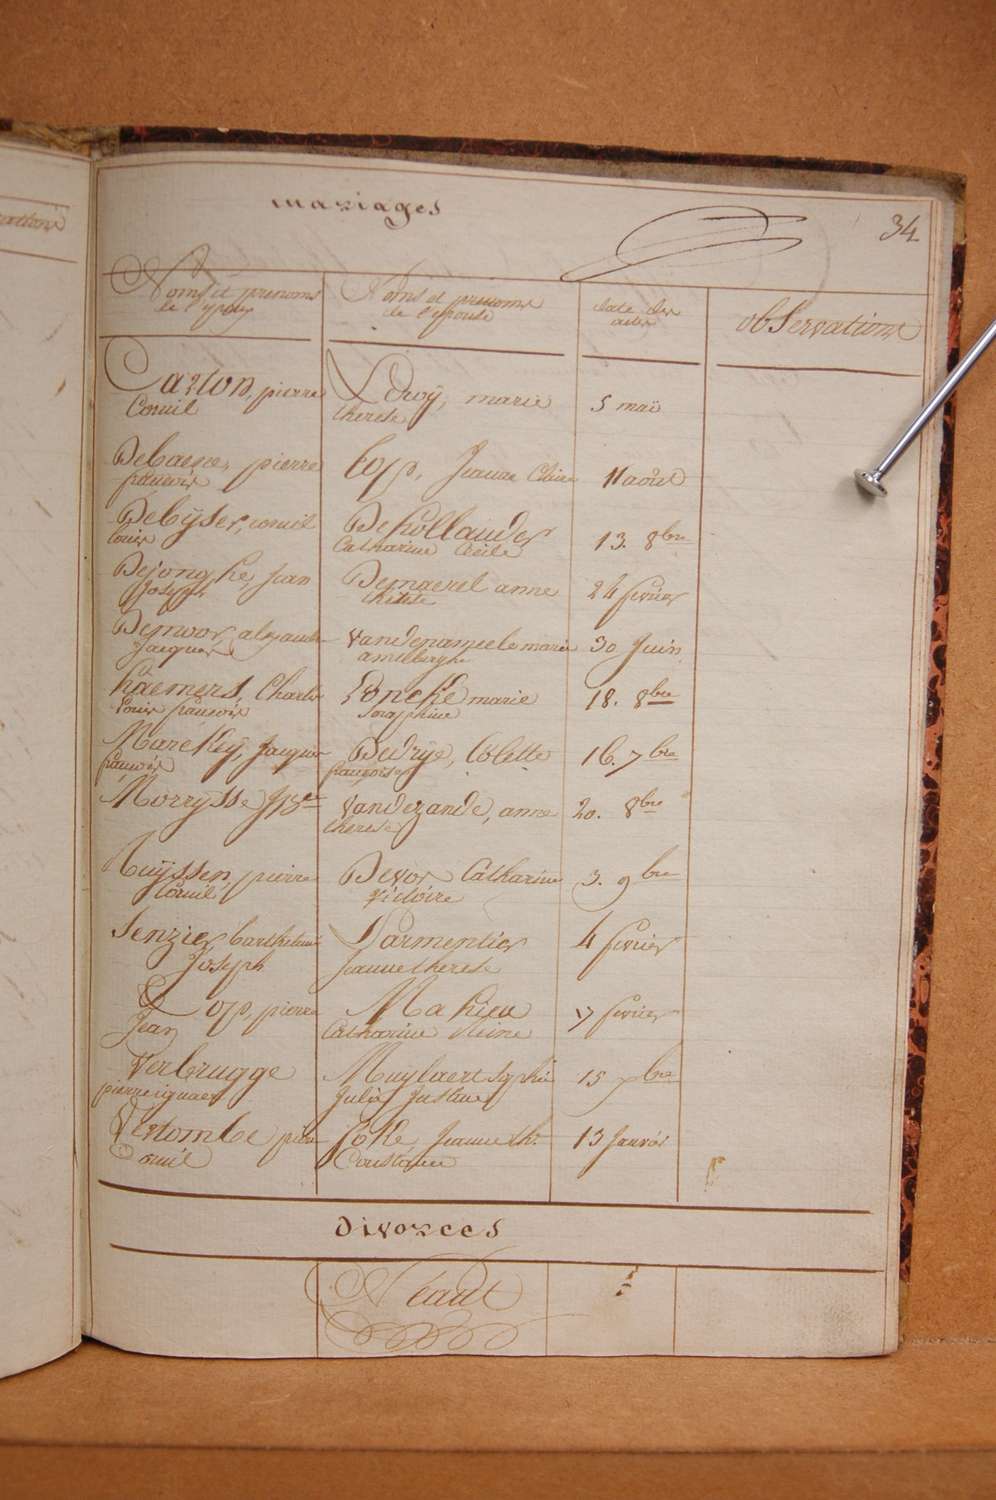 mariages
34
Noms et prenoms
de l'epoux
Noms et prenoms
de l'epouse
date des
actes
observations
Carton, pierre
Cornil
Ledoy, marie
therese
5 mai
Debacque, pierre
francois
Cop, Jeanne Claire
11 aout
Debÿser, cornil
louis
De hollander
Catharine Cecile
13. 8bre
Dejonghe, Jean
Joseph
Demaerel anne
therese
24 fevrier
Demoor, alexandre
Jacques
Vandenameele marie
amelberghe
30 Juin
haemers, Charles
Louis francois
Loncke marie
Seraphine
18. 8bre
Mareleÿ, Jacques
francois
Dedrÿe, Colette
francoise
16. 7bre
Morrÿsse Jn Bte
Vandezande, anne
therese
20. 8bre
Ruÿssen, pierre
Cornil
Devos Catharine
Victoire
3. 9bre
Senzier, barthelemi
Joseph
Darmentier
Jeanne therese
4 fevrier
Top, pierre
Jean
Mahieu
Catharine Reine
17 fevrier
Verbrugge
pierre ignace
Muylaert Sophie
Julie Justine
15 7bre
Vertombe pierre
Cornil
Joke Jeanne th.
Constance
13 Janvier
Divorces
Neant